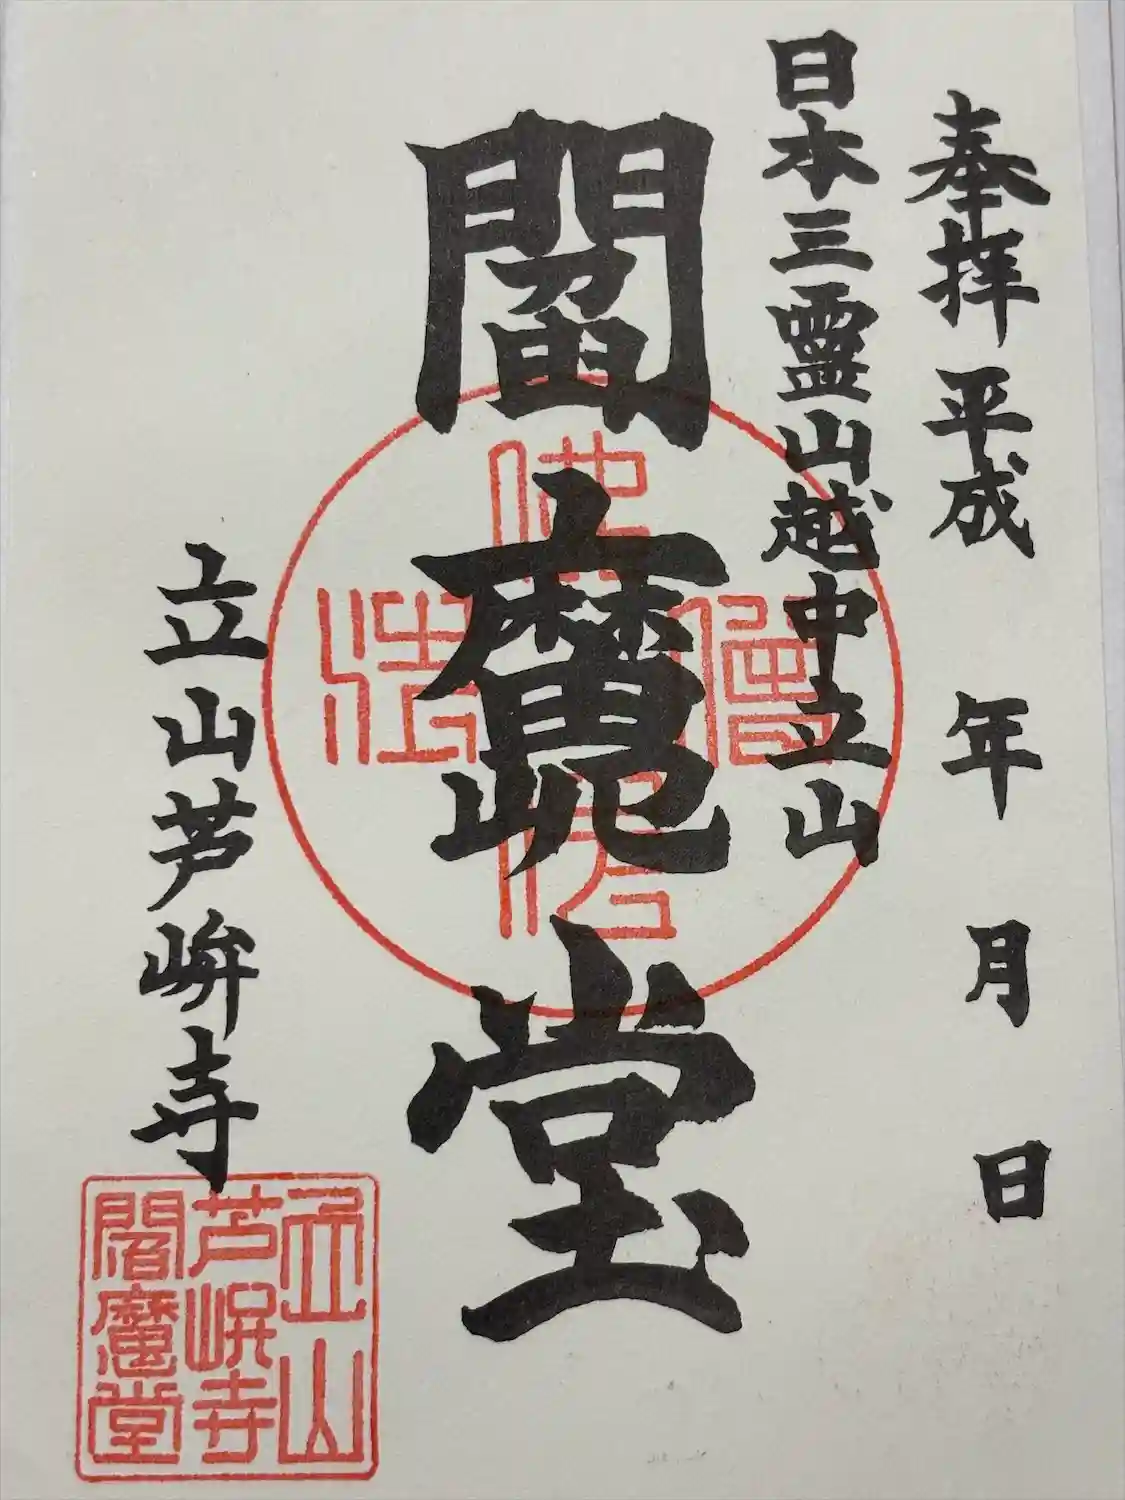 奉拝 平成 年 月 日
日本三霊山越中立山
閻魔堂
佛 法 僧 宝
立山芦峅寺
立山
芦峅寺
閻魔堂